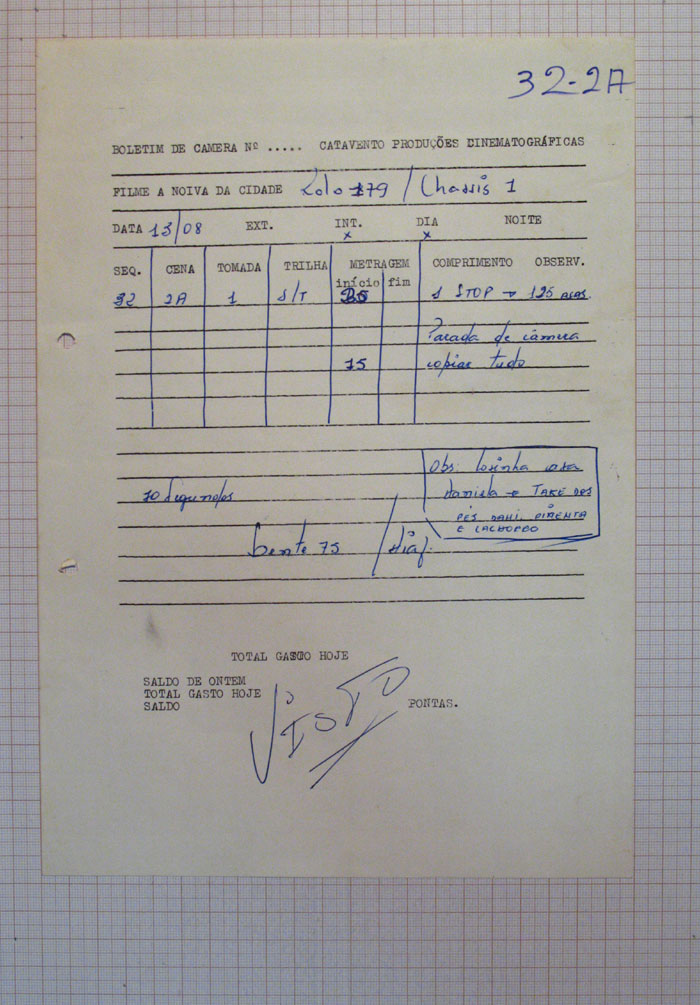 32-2A
BOLETIM DE CAMERA Nº ..... CATAVENTO PRODUÇÕES CINEMATOGRÁFICAS
FILME A NOIVA DA CIDADE Rolo 179 / Chassis 1
DATA 13/08 EXT. INT. DIA NOITE
x x
SEQ. CENA TOMADA TRILHA METRAGEM COMPRIMENTO OBSERV.
início fim
32 2A 1 S/T STOP → 125 ASAS.
Parada de câmera
15 copiar tudo
Obs: Cozinha casa
10 Segundos Daniela → TAKE DOS
PÉS DANI, PIMENTA
E CACHORRO
Lente 75 / diaf.
TOTAL GASTO HOJE
SALDO DE ONTEM
TOTAL GASTO HOJE
SALDO PONTAS.
VISTO